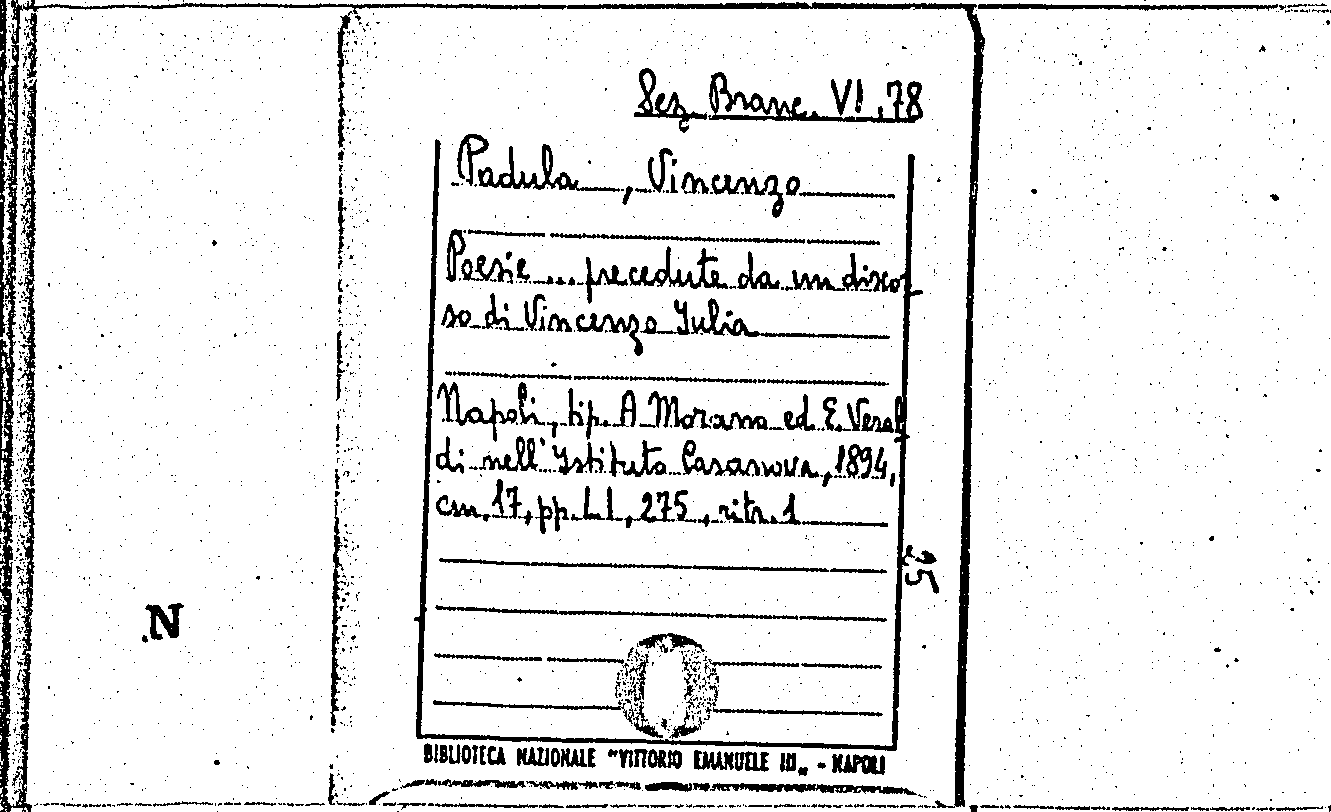 Sez. Branc. VI.78
Padula, Vincenzo
Poesie ... precedute da un discor-
so di Vincenzo Julia
Napoli, tip. A Morano ed E. Veral-
di nell'Istituto Casanova, 1894,
cm. 17, pp. LI, 275, ritr. 1
25
N
BIBLIOTECA NAZIONALE "VITTORIO EMANUELE III„ - NAPOLI